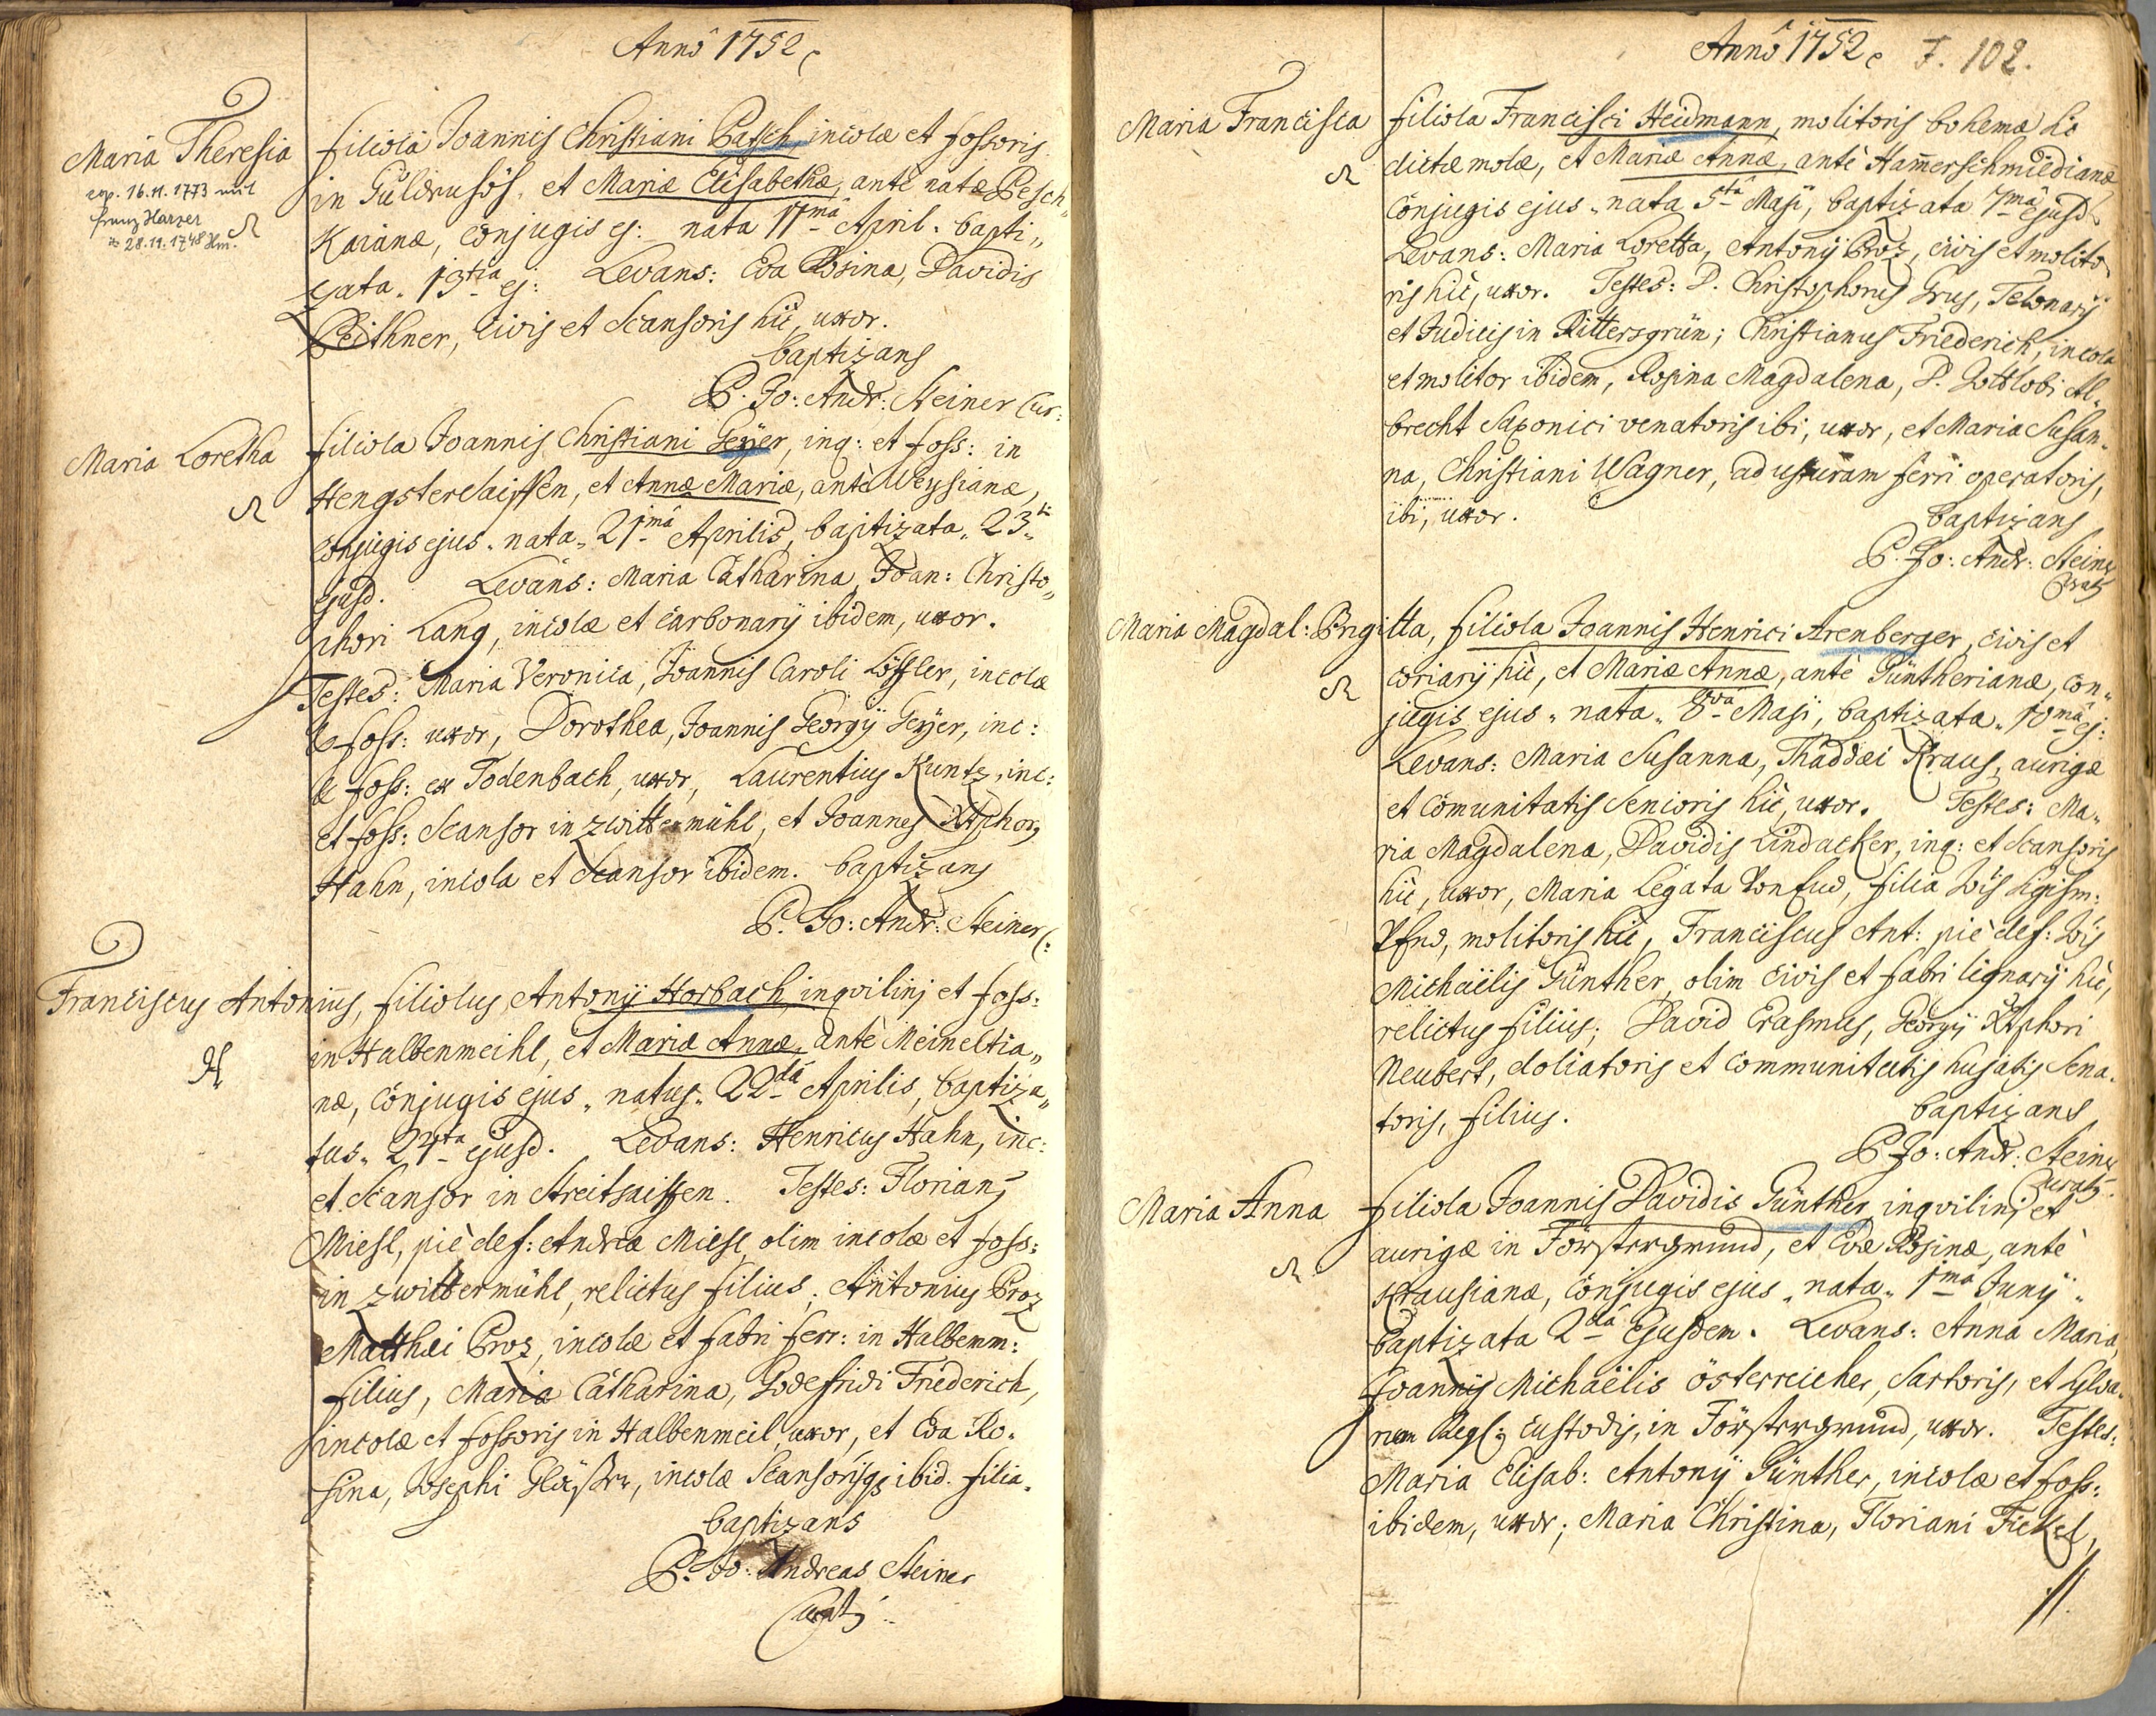 Annô 1752
Maria Theresia
cop. 16.11.1773 mit
franz Harzer
28.11.1748 Hm.
filiola Joannis Christiani Patsch, incolæ et fossoris
in Güldnshöh, et Mariæ Elisabethæ, antè natæ Pesch„
Kaianæ, conjugis ej: nata 11mâ April. bapti„
zata. 13tia ej: Levans: Eva Rosina, Davidis
Peithner, civis et Scansoris hic, uxor.
baptizans
P. Jo: Andr: Steiner Cur:
Maria Loretha
filiola Joannis Christiani Geÿer, inq: et foss: in
Hengstererbaissen, et Annæ Mariæ, antè Weysianæ,
conjugis ejus. nata„ 21mâ Aprilis, baptizata„ 23
ejusd. Levans: Maria Catharina, Joan: Christo„
phori Lang, incolæ et carbonarÿ ibidem, uxor.
Testes: Maria Veronica, Joannis Caroli Löffler, incolæ
& foss: uxor, Dorothea, Joannis Georgÿ Geÿer, inc:
& foss: ex Todenbach, uxor, Laurentius Kuntz, inc:
et foss: Scansor in Zwittermühl, et Joannes Xtphorg
Hahn, incola et Scansor ibidem. baptizans
P. Jo: Andr: Steiner C:
Franciscus Antonius, filiolus Antonÿ Horbach, inqvilinj et foss:
in Halbenmeihl, et Mariæ Annæ, antè Meineltia„
næ, conjugis ejus„ natus„ 22dâ Aprilis, baptiza„
tus„ 24ta ejusd. Levans: Henricus Hahn, inc:
et Scansor in Streitsaissen. Testes: Florian9
Miesl, piè def: Andreæ Miesl olim incolæ et foss:
in Zwittermühl, relictus filius, Antonius Proz
Matthæi Proz, incolæ et fabri ferr: in Halbenm:
filius, Maria Catharina, Godefridi Friederich,
incolæ et fossoris in Halbenmeil uxor, et Eva Ro„
sina, Josephi Gläsr, incolæ Scansorisq; ibid. filia.
baptizans
P. Jo: Andreas Steiner
Curat9
Annô 1752 F. 102.
Maria Francisca
filiola Francisci Heidmann, molitoris bohemæ hic
dictæ molæ, et Mariæ Annæ, antè Ham̄erschmiedianæ
conjugis ejus„ nata 5tâ Maji, baptizata 7mâ ejusd
Levans: Maria Loretta, Antonÿ Proz, civis et molito
ris hic, uxor. Testes: D. Christophorus Grus, Telonarÿ
et Judicis in Rittersgrün; Christianus Friederich, incola
et molitor ibidem, Rosina Magdalena, D. Gottlobi Al„
brecht Saxonici venatoris ibi, uxor, et Maria Susan„
na, Christiani Wagner, ad usturam ferri operatoris,
ibi, uxor.
baptizans
P. Jo: Andr: Steiner
Curat9
Maria Magdal: Brigitta, filiola Joannis Henrici Arenberger, civis et
coriarÿ hic, et Mariæ Annæ, antè Güntherianæ, con„
jugis ejus„ nata„ 8vâ Maji, baptizata„ 10mâ ej:
Levans: Maria Susanna, Thaddæi Kraus, aurigæ
et com̄unitatis Senioris hic, uxor. Testes: Ma„
ria Magdalena, Davidis Lindacker, inq: et Scansoris
hic, uxor, Maria Legata filia Jois Sigism:
molitoris hic, Franciscus Ant: piè def: Jois
Michaëlis Günther, olim civis et fabri lignarÿ hic,
relictus filius; David Erasmus, Georgÿ Xtphori
Neubert, doliatoris et communitatis hujatis Sena„
toris, filius.
baptizans
P. Jo: Andr: Steiner
Curat9.
Maria Anna
filiola Joannis Davidis Günther inqvilinj et
aurigæ in Förstergrund, et Evæ Rosinæ, antè
Krausianæ, conjugis ejus„ nata„ 1mâ Junÿ„
baptizata 2dâ Ejusdem. Levans: Anna Maria,
Joannis Michaëlis österreicher, Sartoris, et Sylva„
rum Reg: custodis, in Försterrgrund, uxor. Testes:
Maria Elisab: Antonÿ Günther, incolæ et foss:
ibidem, uxor; Maria Christina, Floriani Fickel,
//.